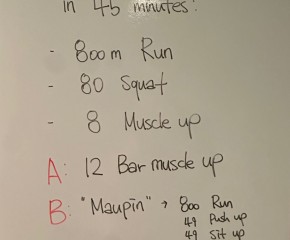 in 45 minutes:
- 800m Run
- 80 Squat
- 8 Muscle up
A: 12 Bar muscle up
B: "Maupin" → 800 Run
49 Push up
49 Sit up